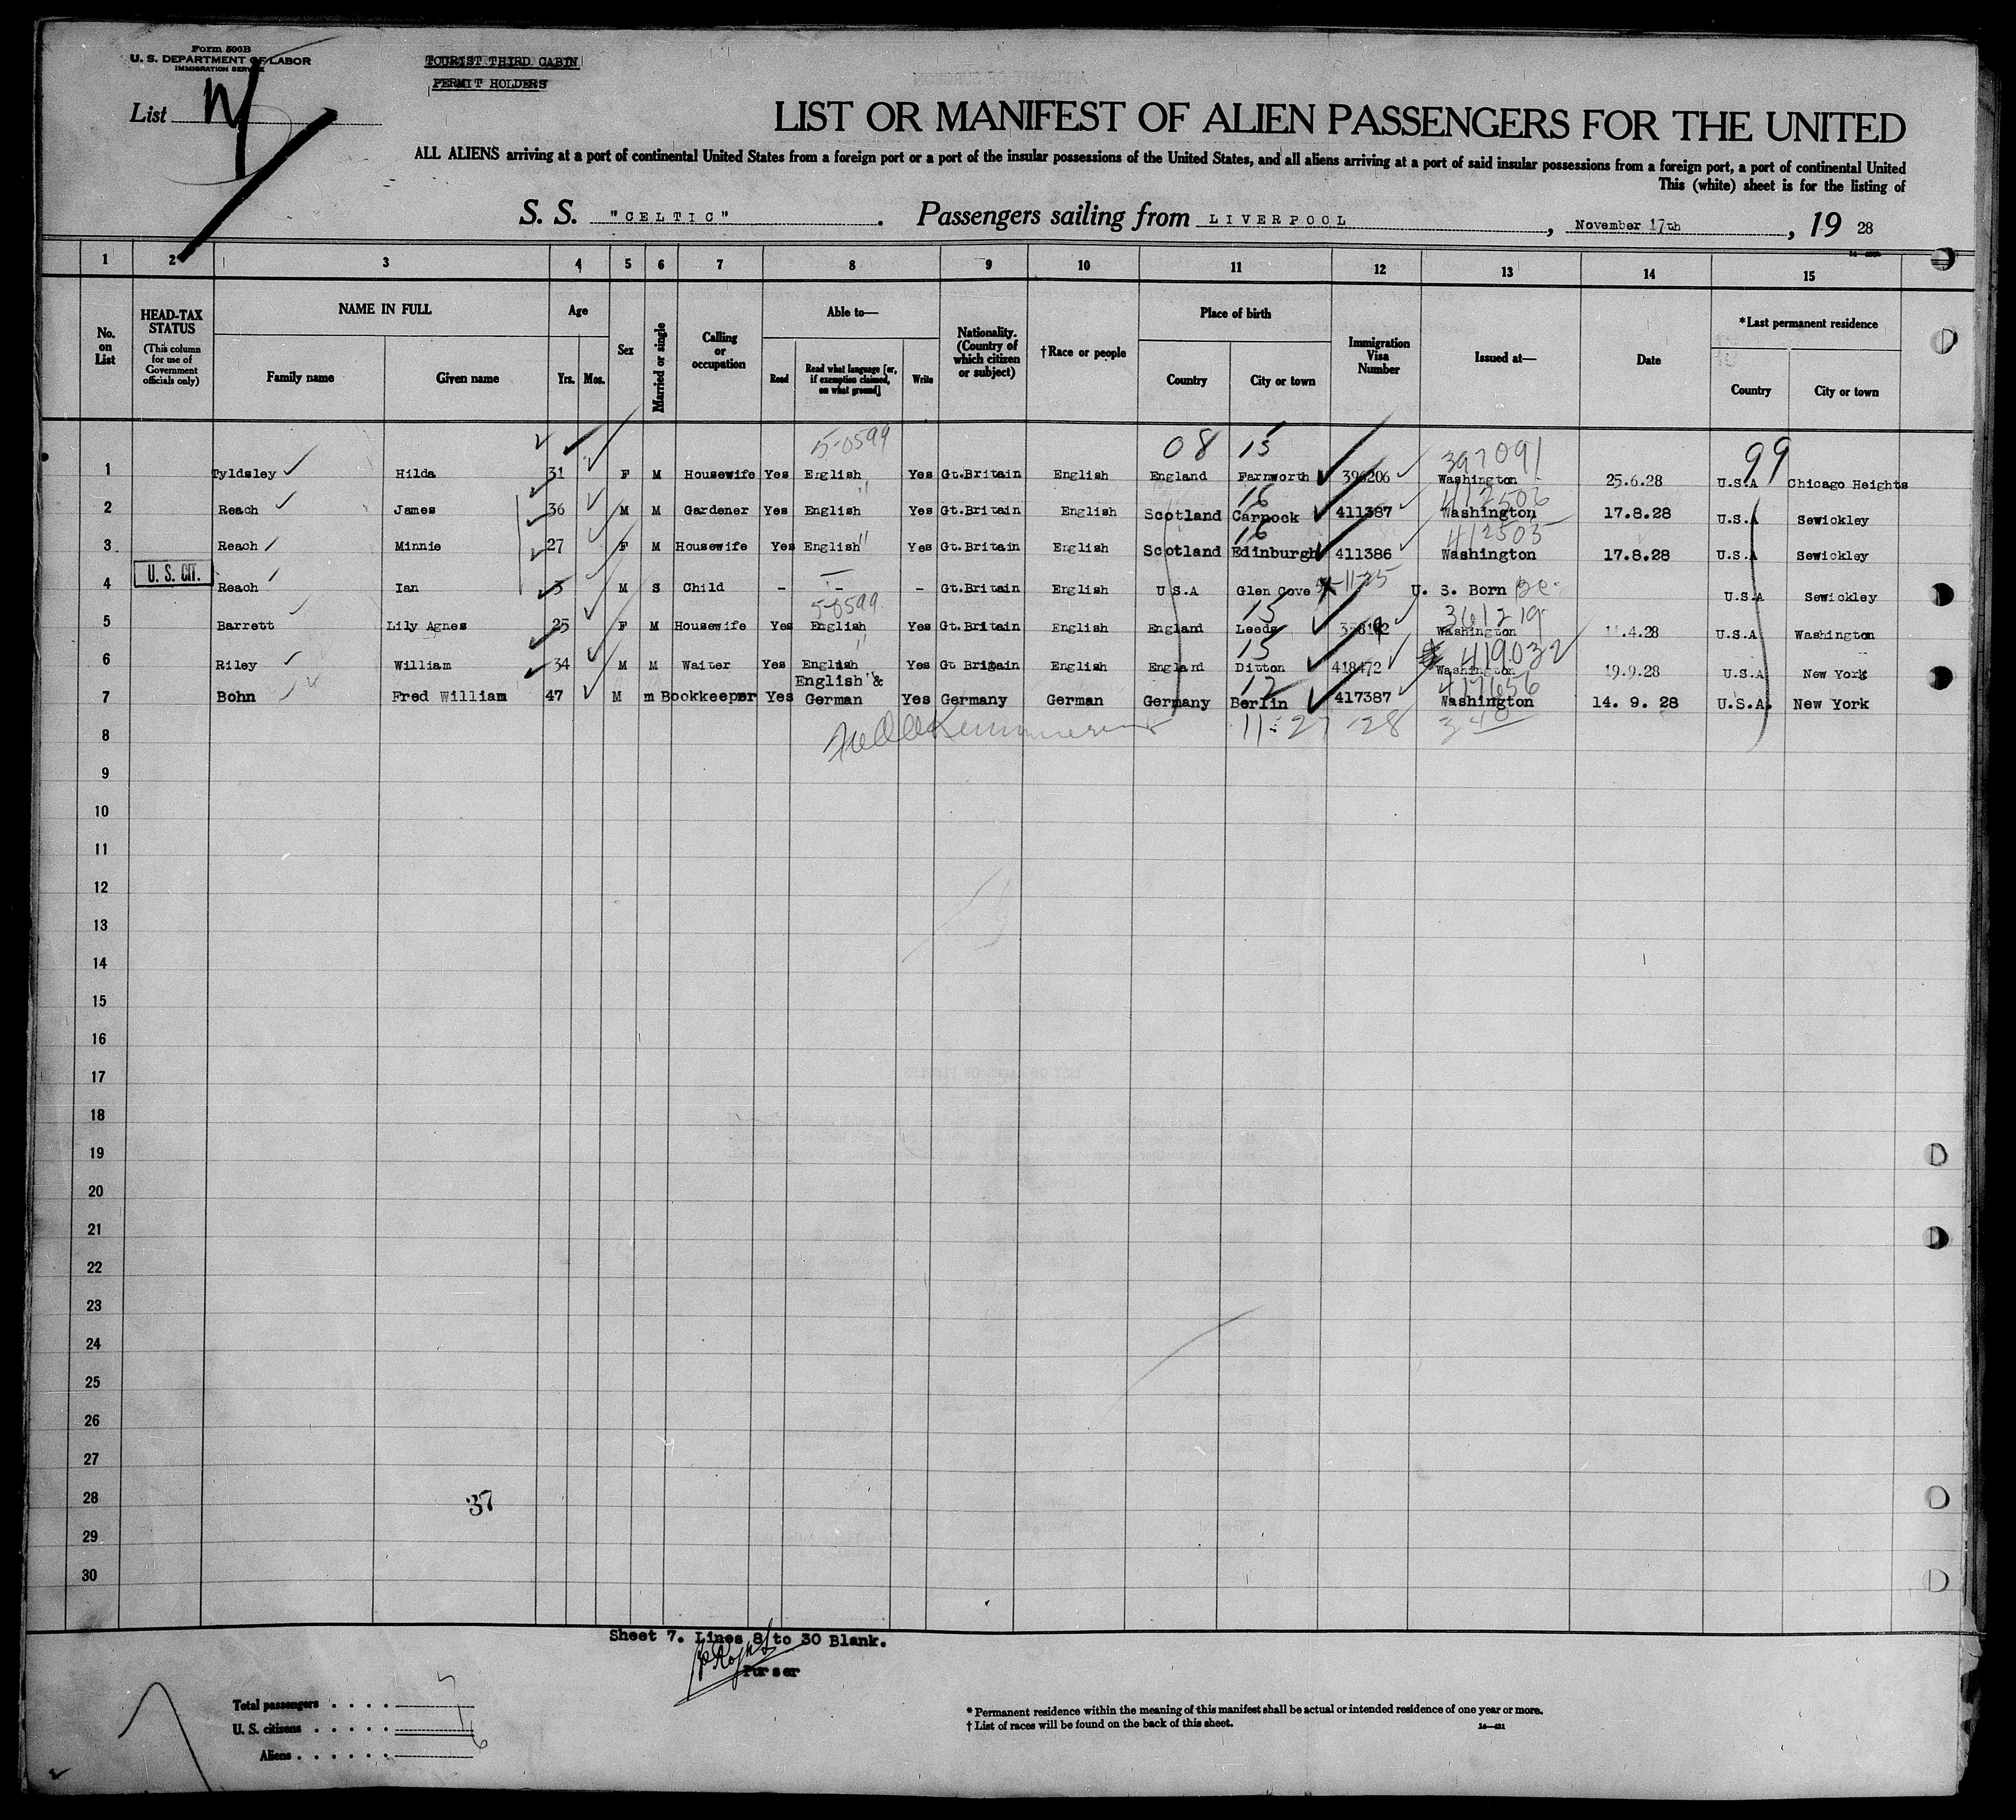 Form 500B
U. S. DEPARTMENT OF LABOR
IMMIGRATION SERVICE
TOURIST THIRD CABIN
PERMIT HOLDERS
List
LIST OR MANIFEST OF ALIEN PASSENGERS FOR THE UNITED
ALL ALIENS arriving at a port of continental United States from a foreign port or a port of the insular possessions of the United States, and all aliens arriving at a port of said insular possessions from a foreign port, a port of continental United
This (white) sheet is for the listing of
S. S. "CELTIC". Passengers sailing from LIVERPOOL, November 17th, 19 28
1 2 3 4 5 6 7 8 9 10 11 12 13 14 15
No. on List
HEAD-TAX STATUS (This column for use of Government officials only)
NAME IN FULL
Family name Given name
Age
Yrs. Mos.
Sex
Married or single
Calling or occupation
Able to—
Read
Read what language [or, if exemption claimed, on what ground]
Write
Nationality. (Country of which citizen or subject)
†Race or people
Place of birth
Country City or town
Immigration Visa Number
Issued at—
Date
*Last permanent residence
Country City or town
5-0599 08 15 397091 99
1 Tyldsley Hilda 31 F M Housewife Yes English Yes Gt.Britain English England Farnworth 396206 Washington 25.6.28 U.S.A Chicago Heights
16 412506
2 Reach James 36 M M Gardener Yes English Yes Gt.Britain English Scotland Carnock 411387 Washington 17.8.28 U.S.A Sewickley
16 412505
3 Reach Minnie 27 F M Housewife Yes English Yes Gt.Britain English Scotland Edinburgh 411386 Washington 17.8.28 U.S.A Sewickley
U. S. CIT.
4 Reach Ian 3 M S Child - - - Gt.Britain English U.S.A Glen Cove U. S. Born U.S.A Sewickley
5-0599 15 361219
5 Barrett Lily Agnes 25 F M Housewife Yes English Yes Gt.Britain English England Leeds Washington 11.4.28 U.S.A Washington
15 419032
6 Riley William 34 M M Waiter Yes English Yes Gt Britain English England Ditton 418472 Washington 19.9.28 U.S.A New York
12 417656
7 Bohn Fred William 47 M m Bookkeeper Yes English & German Yes Germany German Germany Berlin 417387 Washington 14. 9. 28 U.S.A. New York
8 11-27-28
9
10
11
12
13
14
15
16
17
18
19
20
21
22
23
24
25
26
27
28 37
29
30
Sheet 7. Lines 8 to 30 Blank.
Purser
Total passengers . . . . 7
U. S. citizens . . . . . 1
Aliens . . . . . . 6
* Permanent residence within the meaning of this manifest shall be actual or intended residence of one year or more.
† List of races will be found on the back of this sheet.
14—421